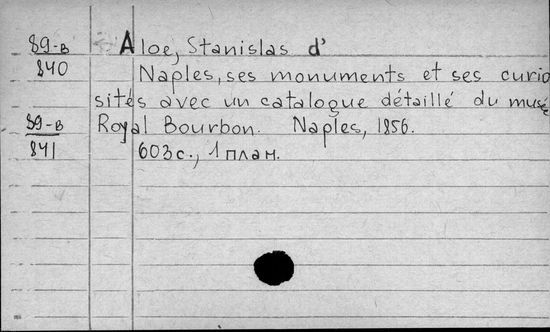 89-в Aloe, Stanislas d'
840 Naples, ses monuments et ses curio
sités avec un catalogue détaillé du musé
89-в Royal Bourbon. Naples, 1856.
841 603с., 1 план.